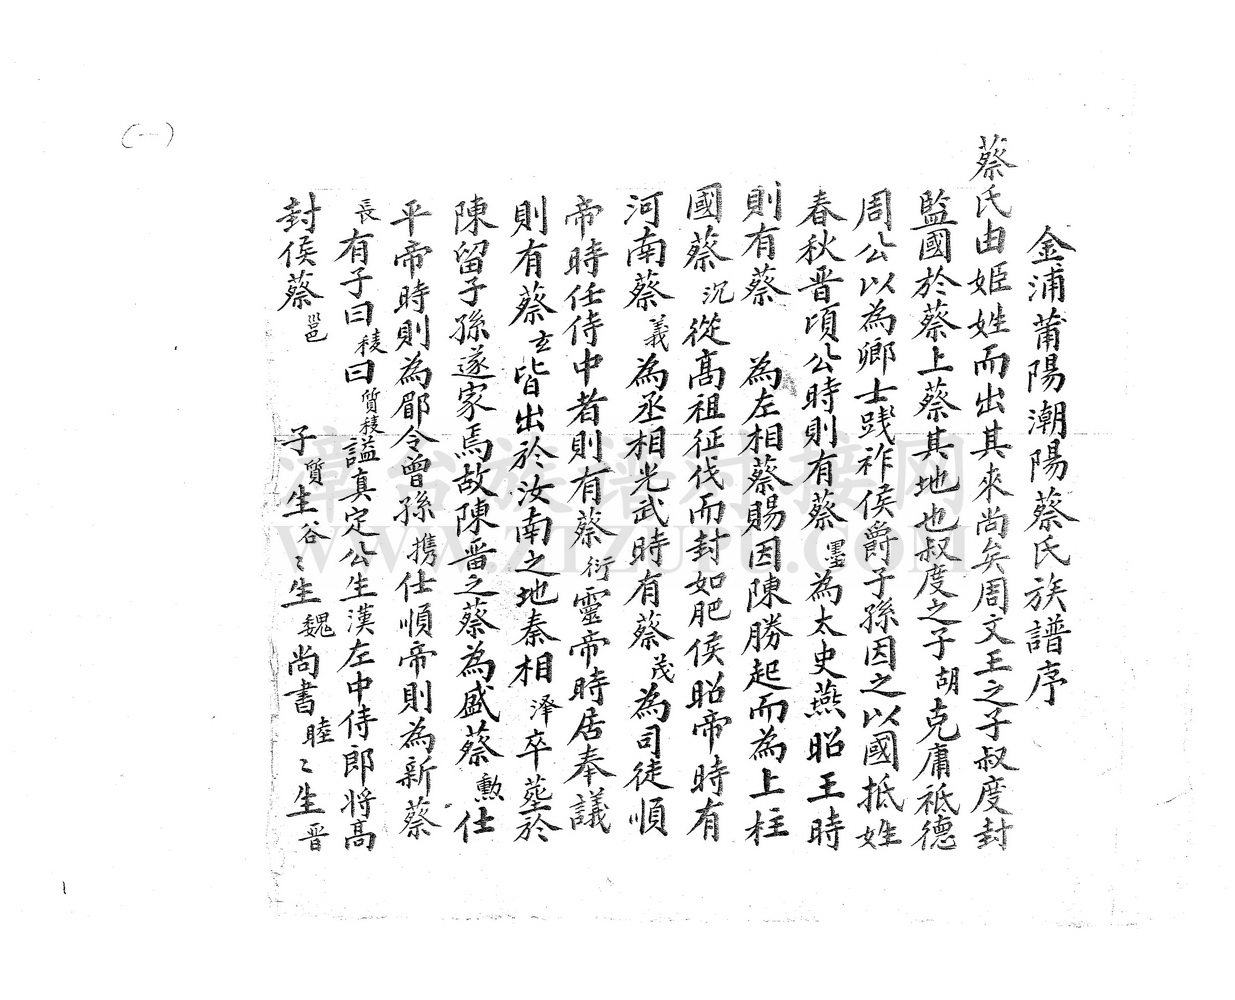 金浦莆陽潮陽蔡氏族譜序
蔡氏由姬姓而出其來尚矣周文王之子叔度封
監國於蔡上蔡其地也叔度之子胡克庸祗德
周公以為卿士踐祚侯爵子孫因之以國抵姓
春秋晋頃公時則有蔡墨為太史燕昭王時
則有蔡 為左相蔡賜因陳勝起而為上柱
國蔡沉從高祖征伐而封如肥侯昭帝時有
河南蔡義為丞相光武時有蔡茂為司徒順
帝時任侍中者則有蔡衍靈帝時居奉議
則有蔡玄皆出於汝南之地秦相澤卒塟於
陳留子孫遂家焉故陳晋之蔡為盛蔡勲仕
平帝時則為郿令曾孫携仕順帝則為新蔡
長有子曰稜曰質稜謚真定公生漢左中侍郎將高
封侯蔡邕 子質生谷〻生魏尚書睦〻生晋
(一)
漳台族谱对接网
www.ztzupu.com